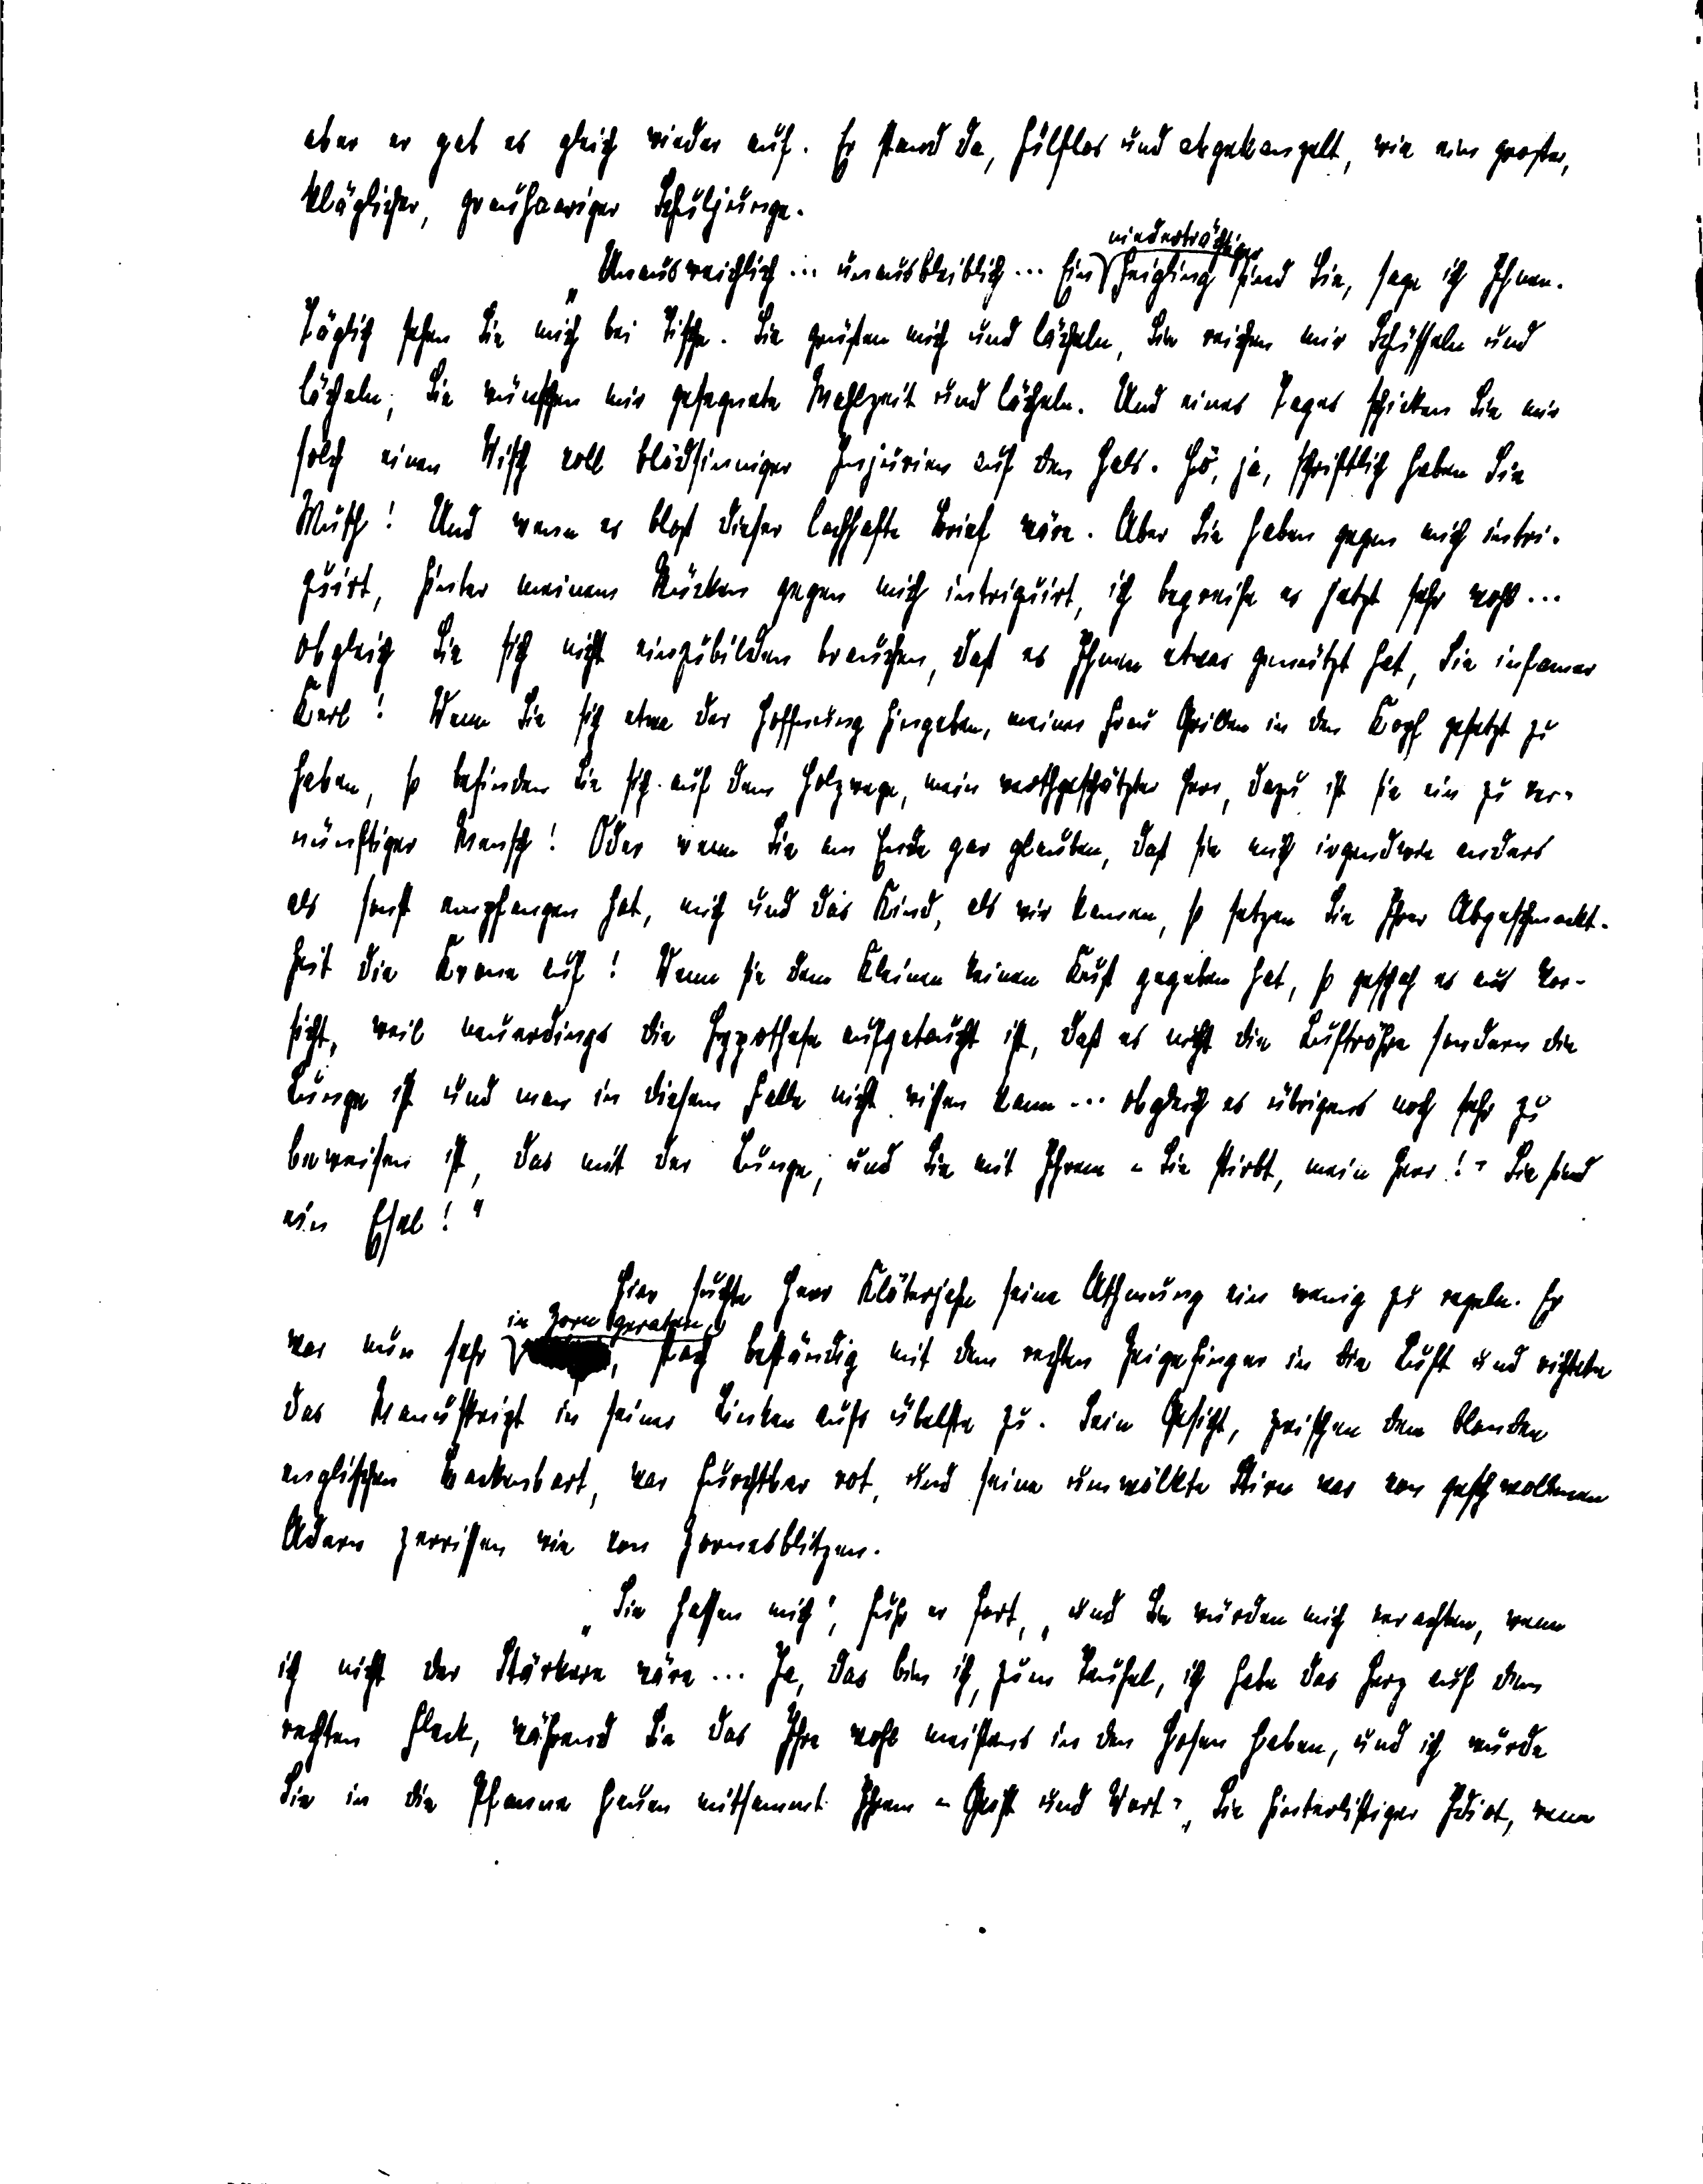 aber er gab es gleich wieder auf. Er stand da, hülflos und abgekanzelt, wie ein großer,
kläglicher, grauhaariger Schuljunge.
niederträchtiger
„Unausweichlich ... unausbleiblich ... Ein Feigling sind Sie, sage ich Ihnen.
Täglich sehen Sie mich bei Tische. Sie grüßen mich und lächeln, Sie reichen mir Schüsseln und
lächeln, Sie wünschen mir gesegnete Mahlzeit und lächeln. Und eines Tages schicken Sie mir
solch einen Wisch voll blödsinniger Injurien auf den Hals. Hö, ja, schriftlich haben Sie
Muth! Und wenn es bloß dieser lachhafte Brief wäre. Aber Sie haben gegen mich intri-
guirt, hinter meinem Rücken gegen mich intriguirt, ich begreife es jetzt sehr wohl ...
obgleich Sie sich nicht einzubilden brauchen, daß es Ihnen etwas genützt hat, Sie infamer
Kerl! Wenn Sie sich etwa der Hoffnung hingeben, meiner Frau Grillen in den Kopf gesetzt zu
haben, so befinden Sie sich auf dem Holzwege, mein werthgeschätzter Herr, dazu ist sie ein zu ver-
nünftiger Mensch! Oder wenn Sie am Ende gar glauben, daß sie mich irgendwie anders
als sonst empfangen hat, mich und das Kind, als wir kamen, so setzen Sie Ihrer Abgeschmackt-
heit die Krone auf! Wenn sie dem Kleinen keinen Kuß gegeben hat, so geschah es aus Vor-
sicht, weil neuerdings die Hypothese aufgetaucht ist, daß es nicht die Luftröhre sondern die
Lunge ist und man in diesem Falle nicht wissen kann ... obgleich es übrigens noch sehr zu
beweisen ist, das mit der Lunge, und Sie mit Ihrem „Sie stirbt, mein Herr!“ Sie sind
ein Esel!“
Hier suchte Herr Klöterjahn seine Athmung ein wenig zu regeln. Er
in Zorn geraten,
war nun sehr , stach beständig mit dem rechten Zeigefinger in die Luft und richtete
das Manuskript in seiner Linken aufs übelste zu. Sein Gesicht, zwischen dem blonden
englischen Backenbart, war furchtbar rot, und seine umwölkte Stirn war von geschwollenen
Adern zerrissen wie von Zornesblitzen.
„Sie hassen mich“, fuhr er fort, „und Sie würden mich verachten, wenn
ich nicht der Stärkere wäre ... Ja, das bin ich, zum Teufel, ich habe das Herz auf dem
rechten Fleck, während Sie das Ihre wohl meistens in den Hosen haben, und ich würde
Sie in die Pfanne hauen mitsammt Ihrem „Geist und Wort“, Sie hinterlistiger Idiot, wenn